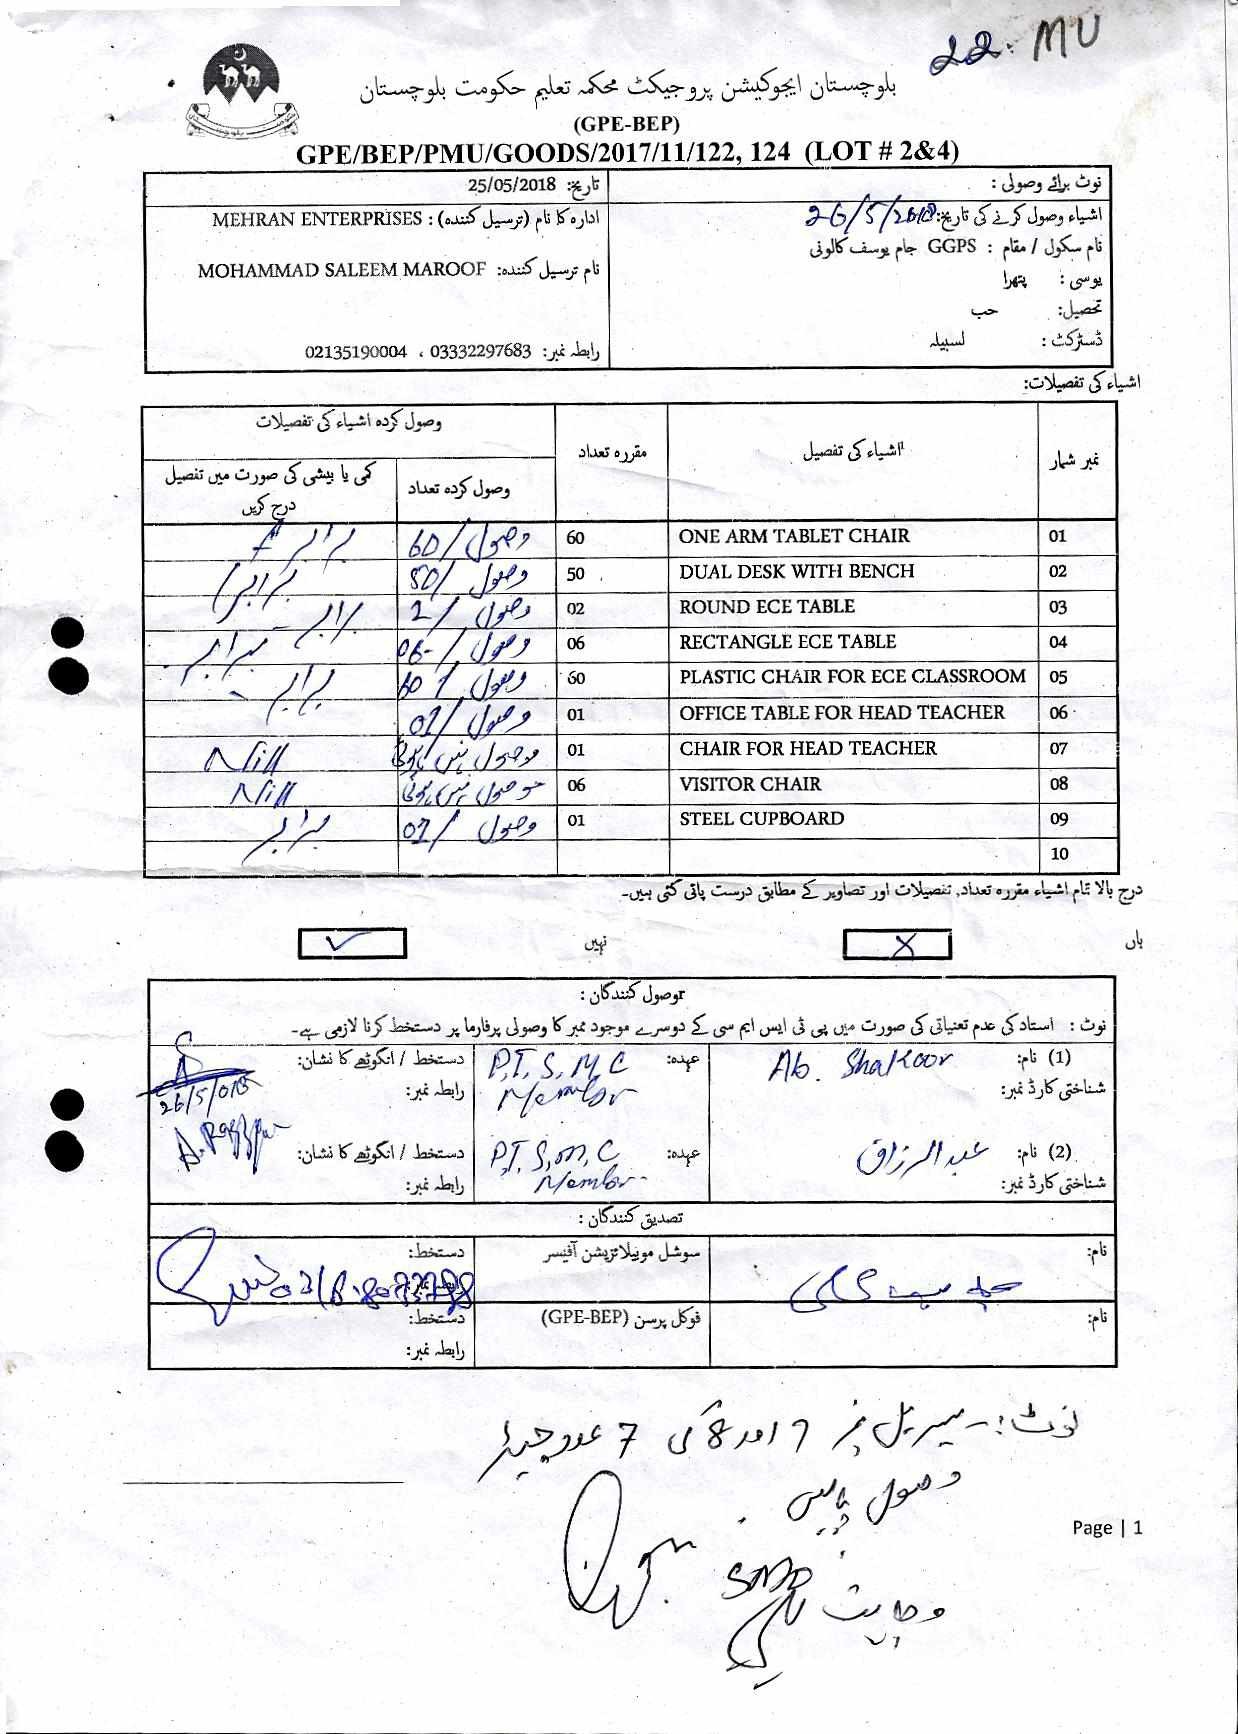 22. MU
بلوچستان ایجوکیشن پروجیکٹ محکمہ تعلیم حکومت بلوچستان
(GPE-BEP)
GPE/BEP/PMU/GOODS/2017/11/122, 124 (LOT # 2&4)
نوٹ برائے وصولی :
تاریخ: 25/05/2018
اشیاء وصول کرنے کی تاریخ: 26/5/2018
ادارہ کا نام (ترسیل کنندہ) : MEHRAN ENTERPRISES
نام سکول / مقام : GGPS جام یوسف کالونی
نام ترسیل کنندہ: MOHAMMAD SALEEM MAROOF
یوسی : پتھرا
تحصیل: حب
ڈسٹرکٹ : لسبیلہ
رابطہ نمبر: 03332297683 ، 02135190004
اشیاء کی تفصیلات:
نمبر شمار اشیاء کی تفصیل مقررہ تعداد وصول کردہ اشیاء کی تفصیلات
وصول کردہ تعداد کمی یا بیشی کی صورت میں تفصیل درج کریں
01 ONE ARM TABLET CHAIR 60 وصول /60 برابر
02 DUAL DESK WITH BENCH 50 وصول /50 برابر
03 ROUND ECE TABLE 02 وصول /2 برابر
04 RECTANGLE ECE TABLE 06 وصول /06 برابر
05 PLASTIC CHAIR FOR ECE CLASSROOM 60 وصول /60 برابر
06 OFFICE TABLE FOR HEAD TEACHER 01 وصول /01
07 CHAIR FOR HEAD TEACHER 01 وصول نہیں ہوئی Nill
08 VISITOR CHAIR 06 وصول نہیں ہوئی Nill
09 STEEL CUPBOARD 01 وصول /01 برابر
10
درج بالا تمام اشیاء مقررہ تعداد, تفصیلات اور تصاویر کے مطابق درست پائی گئی ہیں۔
ہاں X نہیں ✓
وصول کنندگان :
نوٹ : استاد کی عدم تعنیاتی کی صورت میں پی ٹی ایس ایم سی کے دوسرے موجود ممبر کا وصولی پرفارما پر دستخط کرنا لازمی ہے۔
(1) نام: Ab. Shakoor عہدہ: P.T.S.M.C Member دستخط / انگوٹھے کا نشان:
شناختی کارڈ نمبر: رابطہ نمبر: 26/5/018
(2) نام: عبدالرزاق عہدہ: P.T.S.M.C Member دستخط / انگوٹھے کا نشان:
شناختی کارڈ نمبر: رابطہ نمبر:
تصدیق کنندگان :
نام: سوشل موبیلائزیشن آفیسر دستخط:
رابطہ نمبر:
نام: فوکل پرسن (GPE-BEP) دستخط:
رابطہ نمبر:
نوٹ:۔ سیریل نمبر 7 اور 8 کی 7 عدد چیئر
وصول نہیں
Page | 1